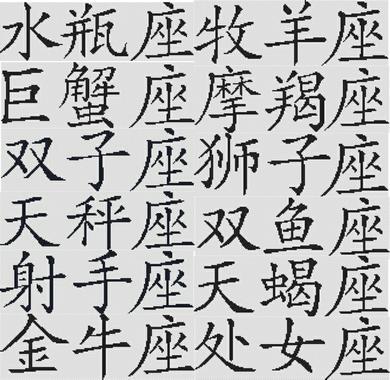 水瓶座 牧羊座
巨蟹座 摩羯座
双子座 狮子座
天秤座 双鱼座
射手座 天蝎座
金牛座 处女座